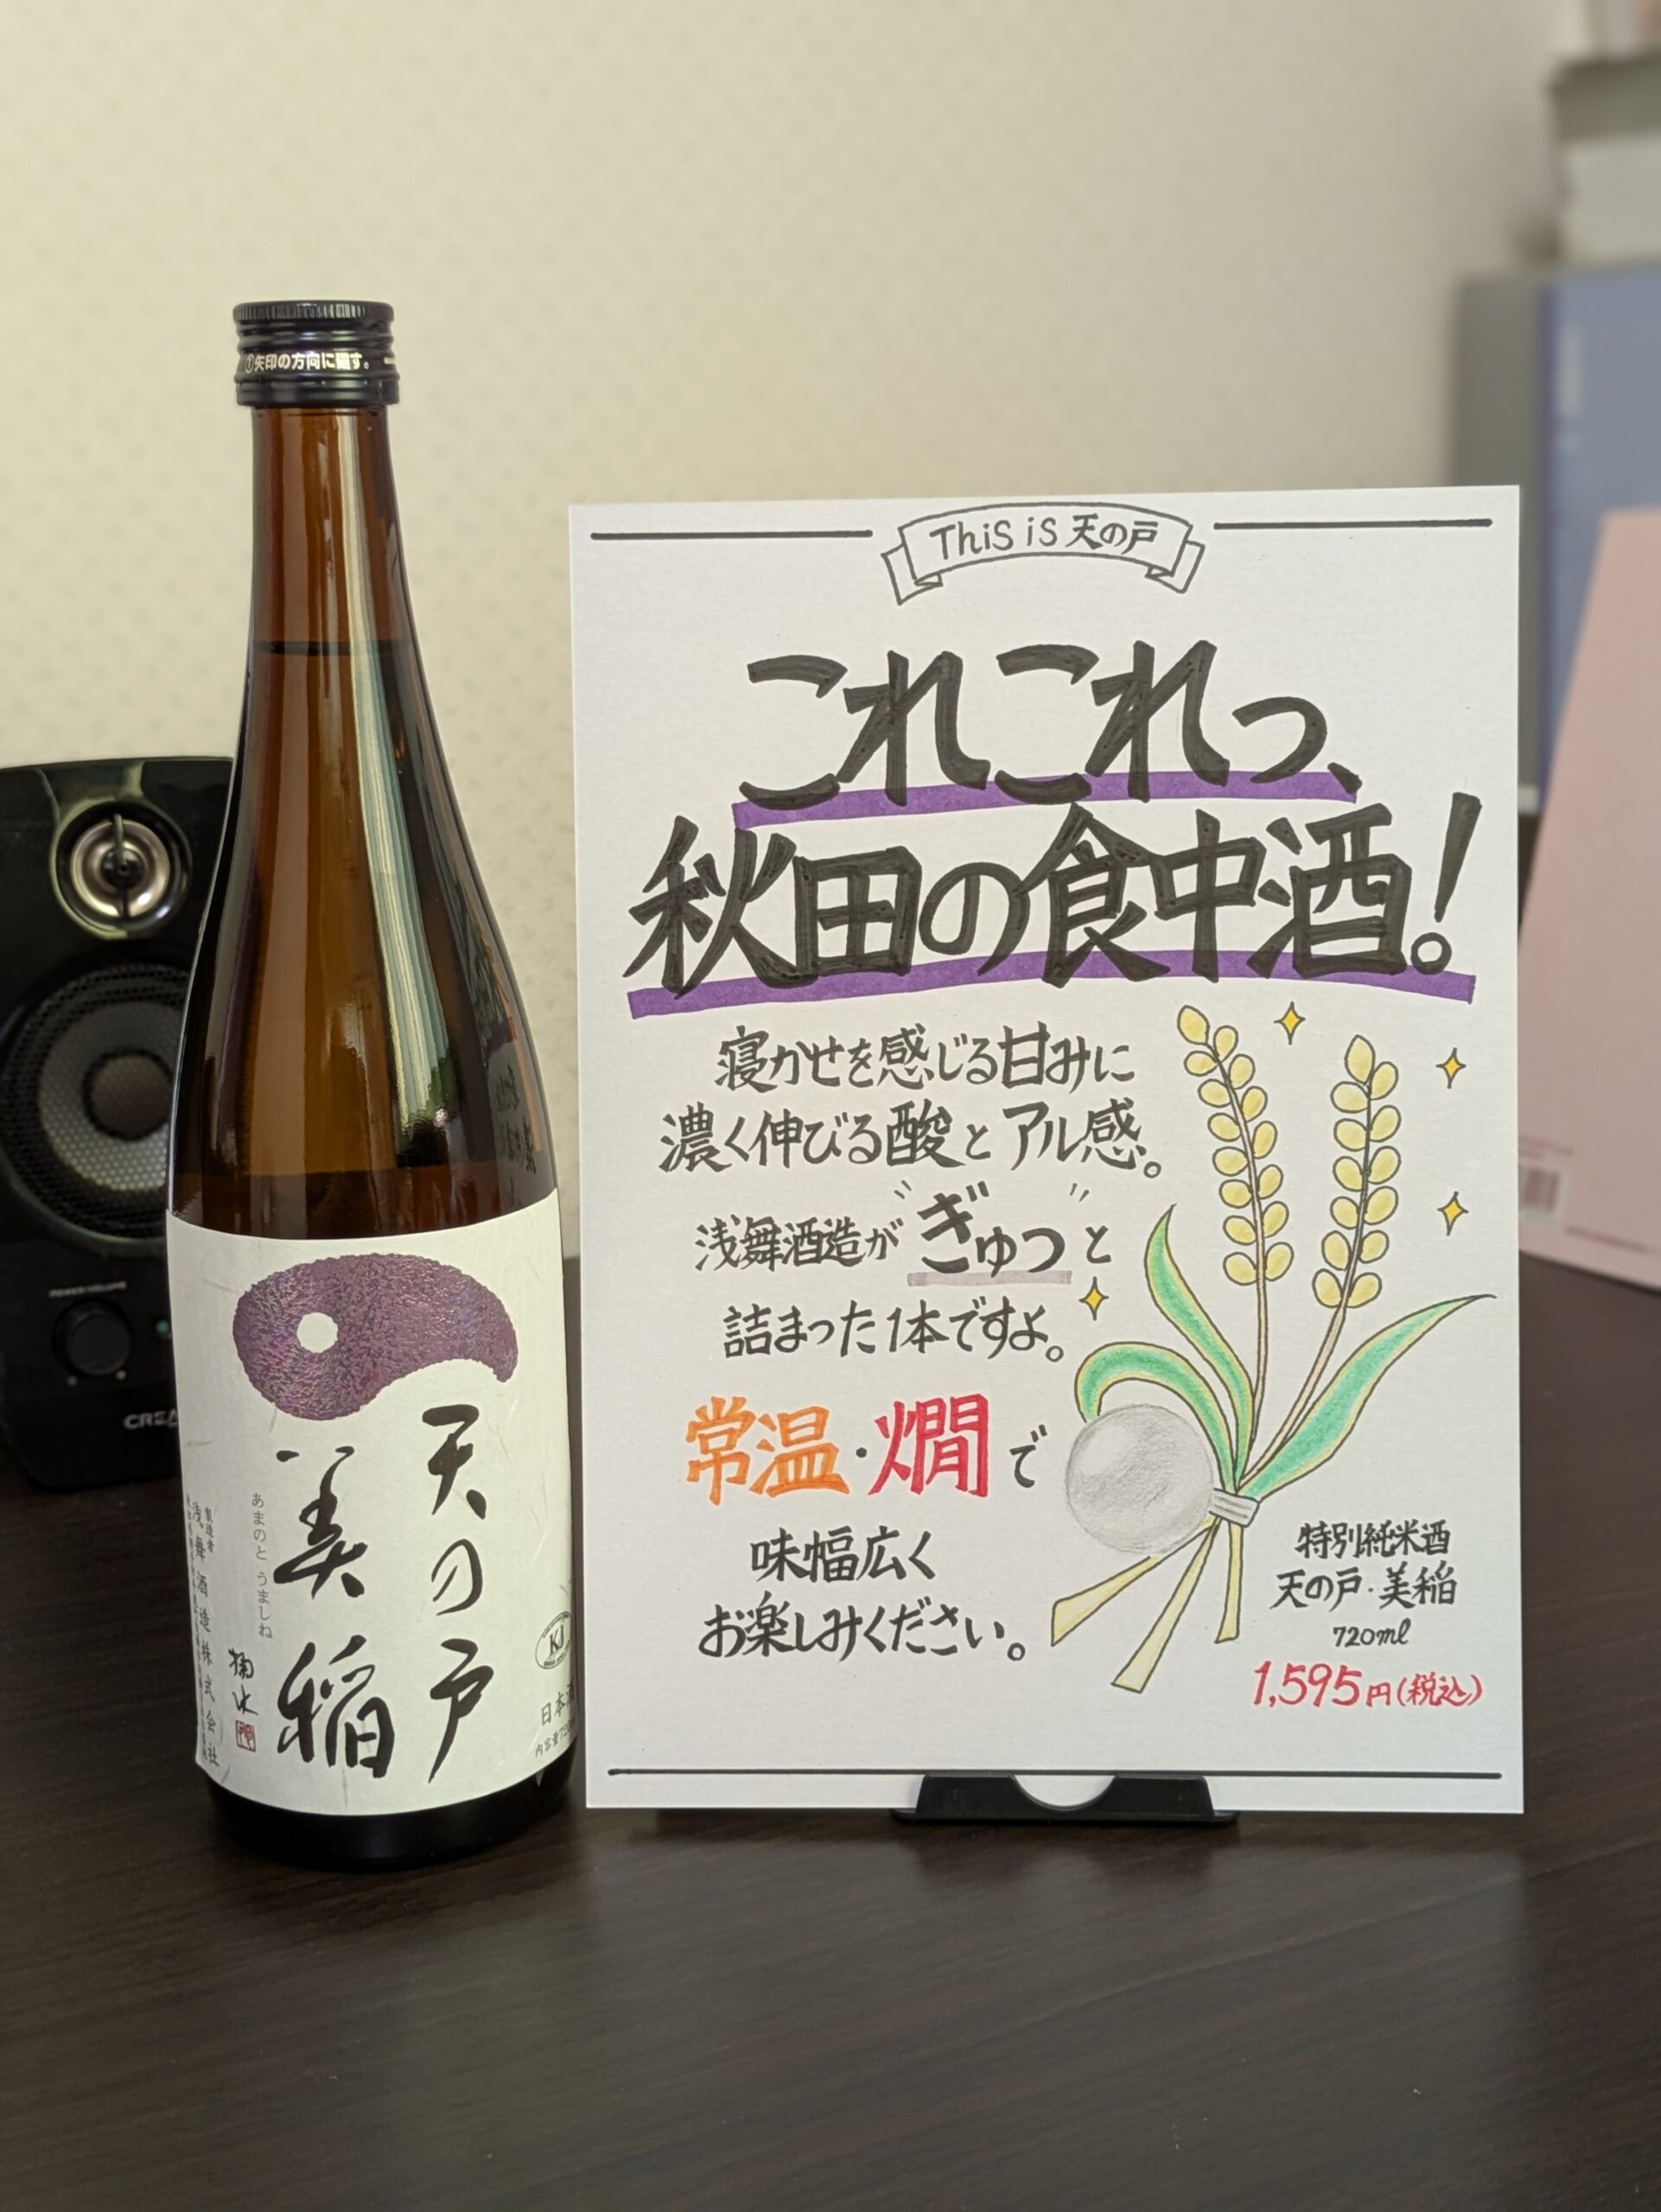 ①矢印の方向に廻す。
天の戸
美稲
あまのと うましね
製造者
浅舞酒造株式会社
KJ
日本酒
POWER/VOLUME
CREA
This is 天の戸
これこれっ、
秋田の食中酒!。
寝かせを感じる甘みに
濃く伸びる酸とアル感。
浅舞酒造が"ぎゅっ"と
詰まった1本ですよ。
常温・燗で
味幅広く
お楽しみください。
特別純米酒
天の戸・美稲
720ml
1,595円(税込)